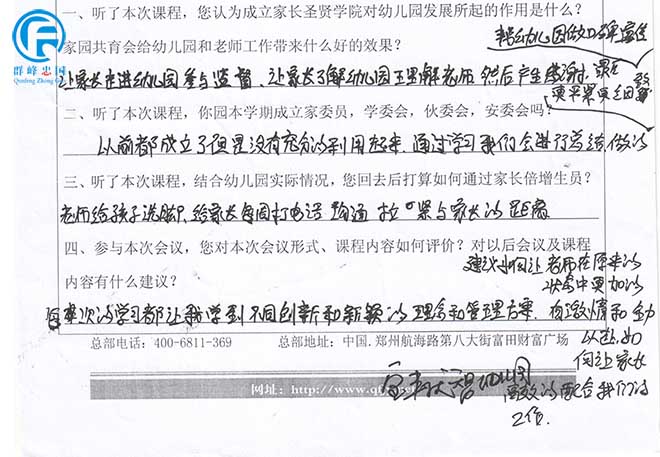 一、听了本次课程，您认为成立家长圣贤学院对幼儿园发展所起的作用是什么？
群峰忠国
Qunfeng Zhong Guo
家园共育会给幼儿园和老师工作带来什么好的效果？
帮幼儿园做口碑宣传
让家长走进幼儿园参与监督，让家长了解幼儿园理解老师 然后产生感谢，
二、听了本次课程，你园本学期成立家委员，学委会，伙委会，安委会吗？
以前都成立了但是没有充分的利用起来，通过学习我们会进行总结，做的
三、听了本次课程，结合幼儿园实际情况，您回去后打算如何通过家长倍增生员？
老师给孩子洗脚，给家长每周打电话 沟通 拉"紧与家长的距离
四、参与本次会议，您对本次会议形式、课程内容如何评价？对以后会议及课程
内容有什么建议？
建议如何让老师在原来的
状态中更加的
每次的学习都让我学到不同创新和新颖的理念和管理方案，
有激情和动
总部电话：400-6811-369
总部地址：中国.郑州航海路第八大街富田财富广场
以赴，如
何让家长
网址：http://www.q
高效的配合我们的
工作.